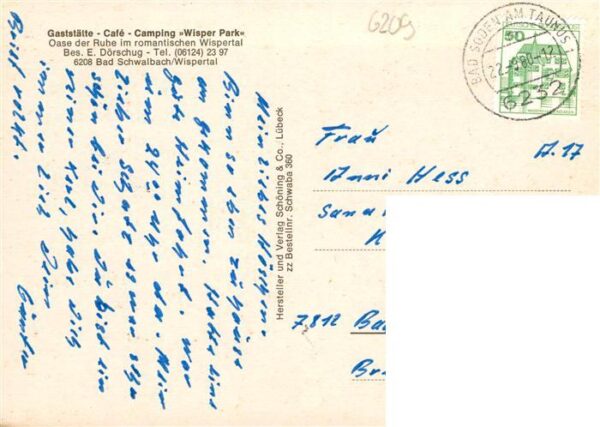 Gaststätte - Café - Camping »Wisper Park«
Oase der Ruhe im romantischen Wispertal
Bes. E. Dörschug - Tel. (06124) 23 97
6208 Bad Schwalbach/Wispertal
6209
BAD SODEN AM TAUNUS 1
22.-9.80-12
6232
50
Mein liebes
Bin so eben zu Hause
an gekommen. Hatte eine
gute Heimfahrt, war
um 24 00 Uhr da. Mein
lieber Schatz es war sehr
schön bei dir. Du bist ein
feiner Kerl, habe dich
immer lieb Dein
Günter
Brief folgt.
Hersteller und Verlag Schöning & Co., Lübeck
zz Bestellnr. Schwaba 360
Frau
Anni Hess
A.17
Sana
7812 Ba
Br